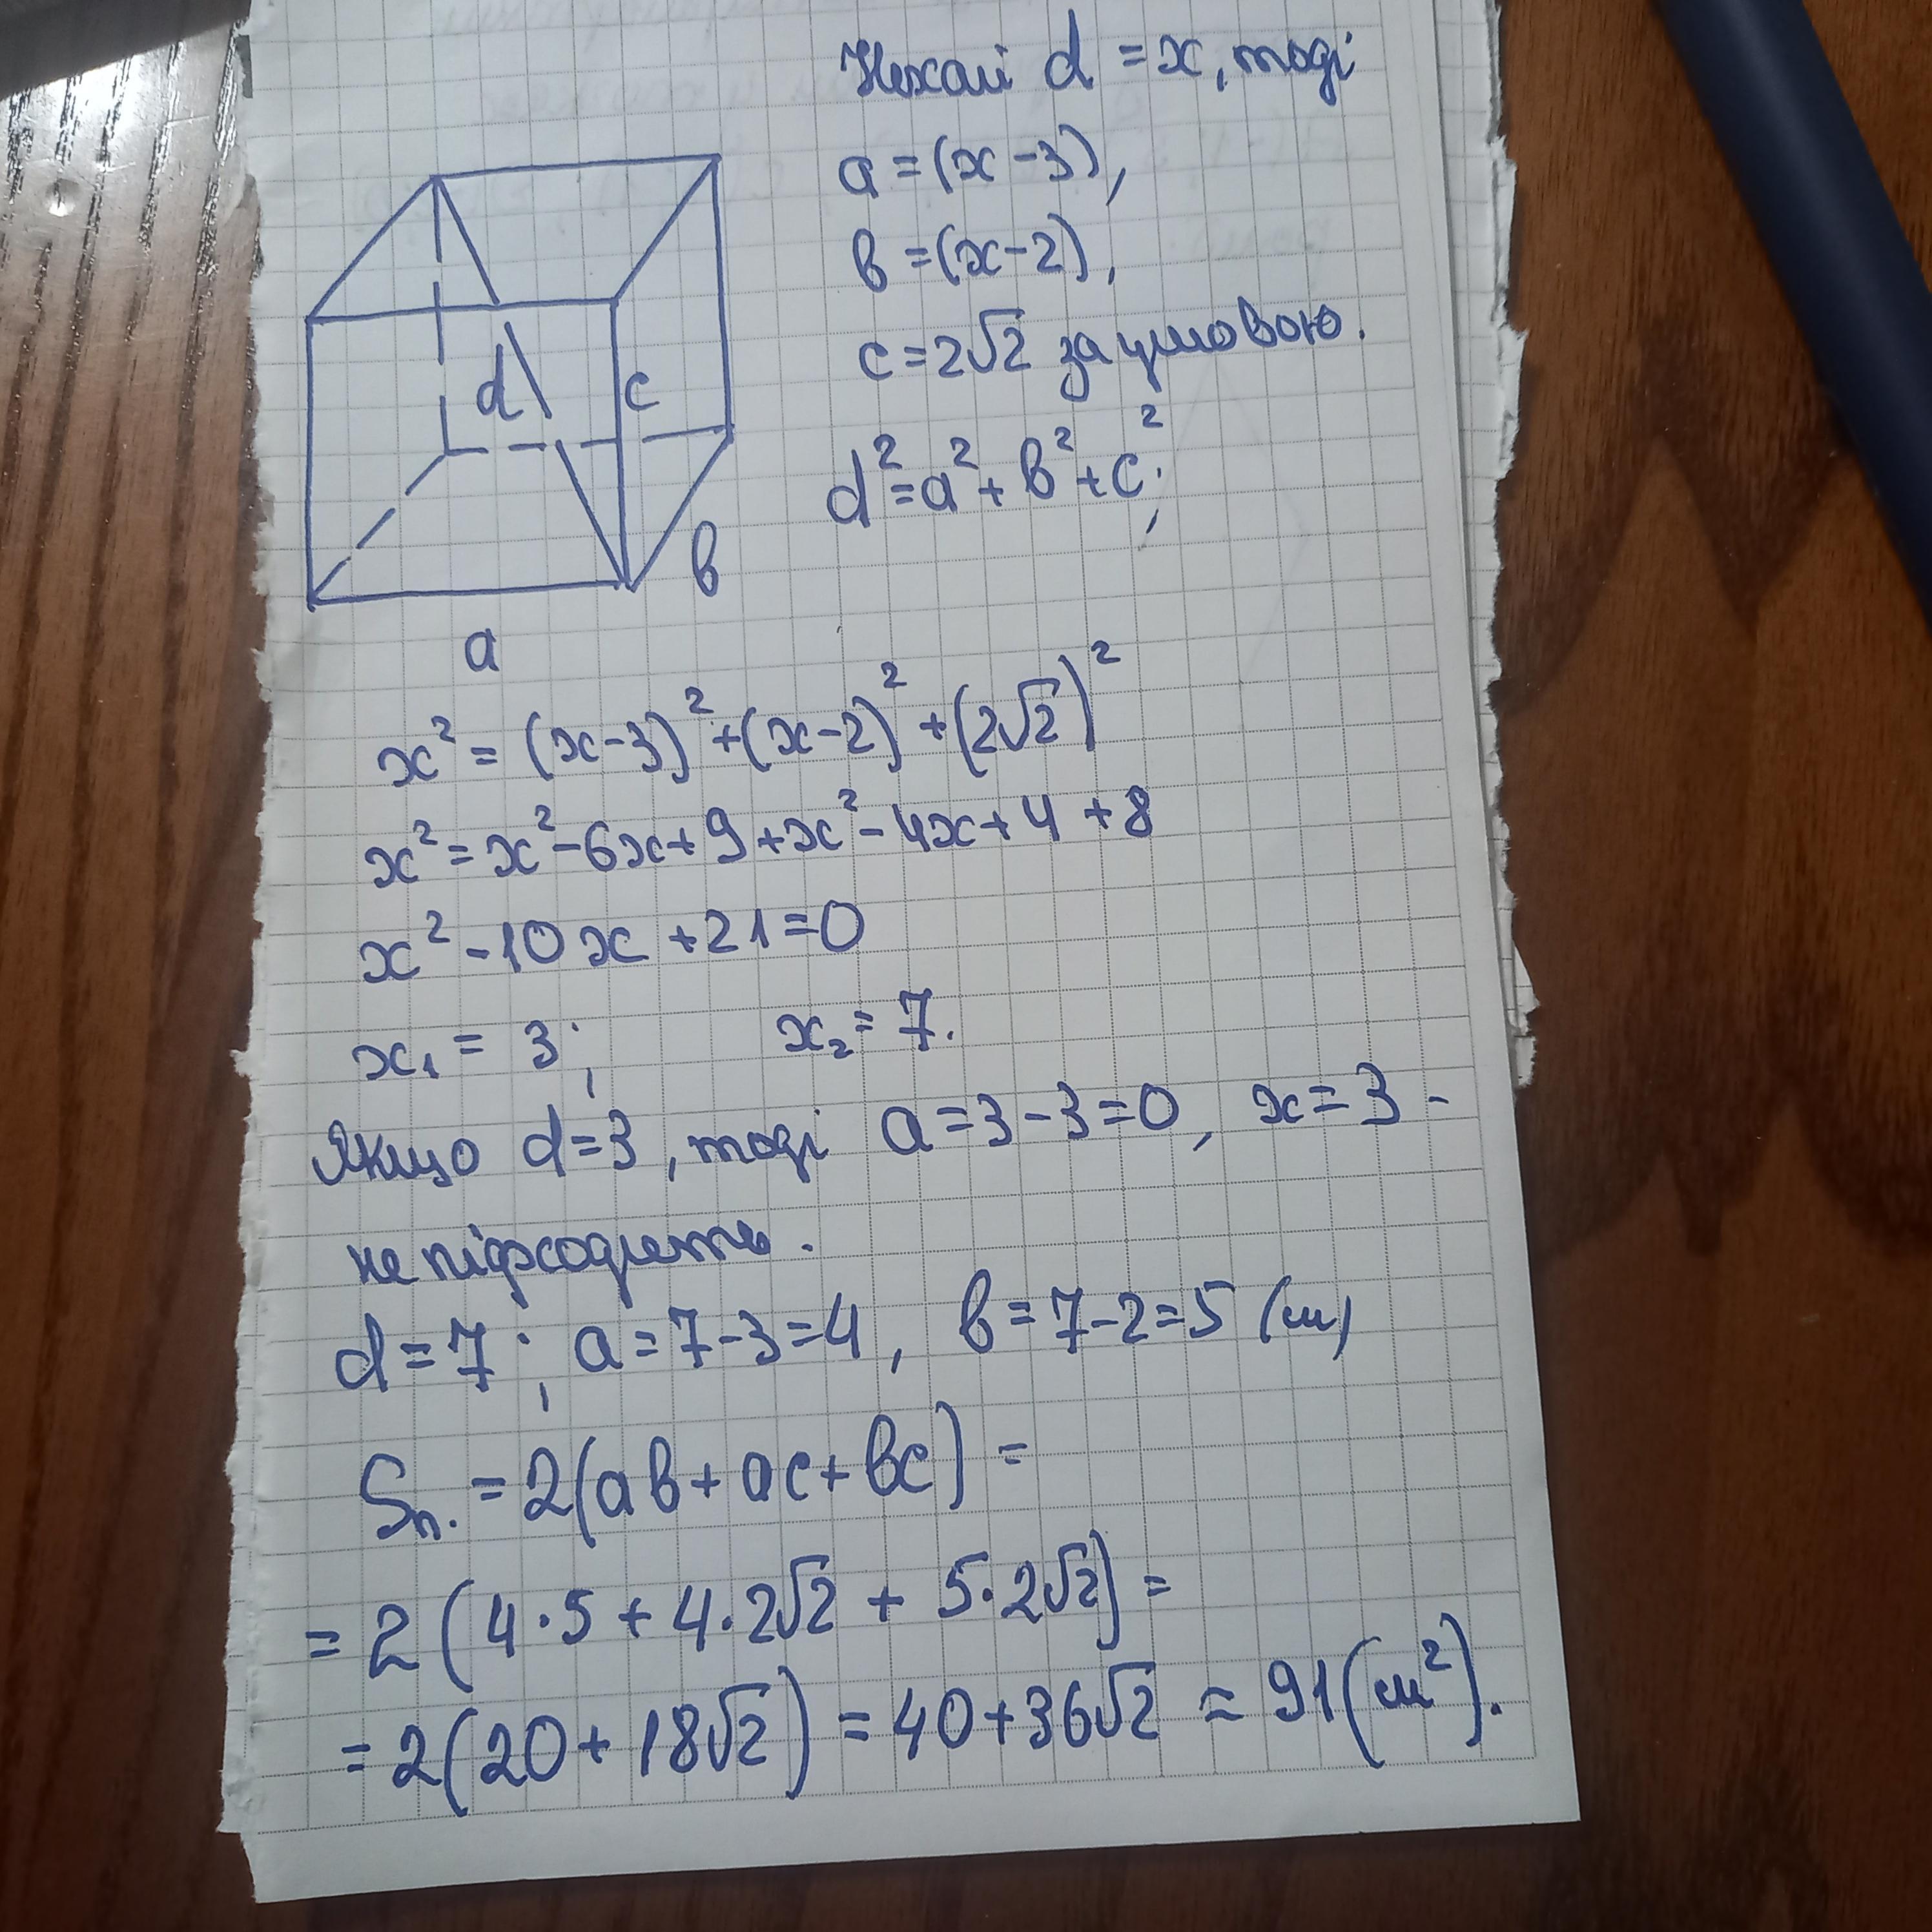 Нехай d = x, тоді
a = (x - 3),
b = (x - 2),
c = 2√2 за умовою.
d² = a² + b² + c²;
d
c
b
a
x² = (x - 3)² + (x - 2)² + (2√2)²
x² = x² - 6x + 9 + x² - 4x + 4 + 8
x² - 10x + 21 = 0
x₁ = 3; x₂ = 7.
Якщо d = 3, тоді a = 3 - 3 = 0, x = 3 -
не підходить.
d = 7; a = 7 - 3 = 4, b = 7 - 2 = 5 (см)
Sп. = 2(ab + ac + bc) =
= 2(4·5 + 4·2√2 + 5·2√2) =
= 2(20 + 18√2) = 40 + 36√2 ≈ 91 (см²).